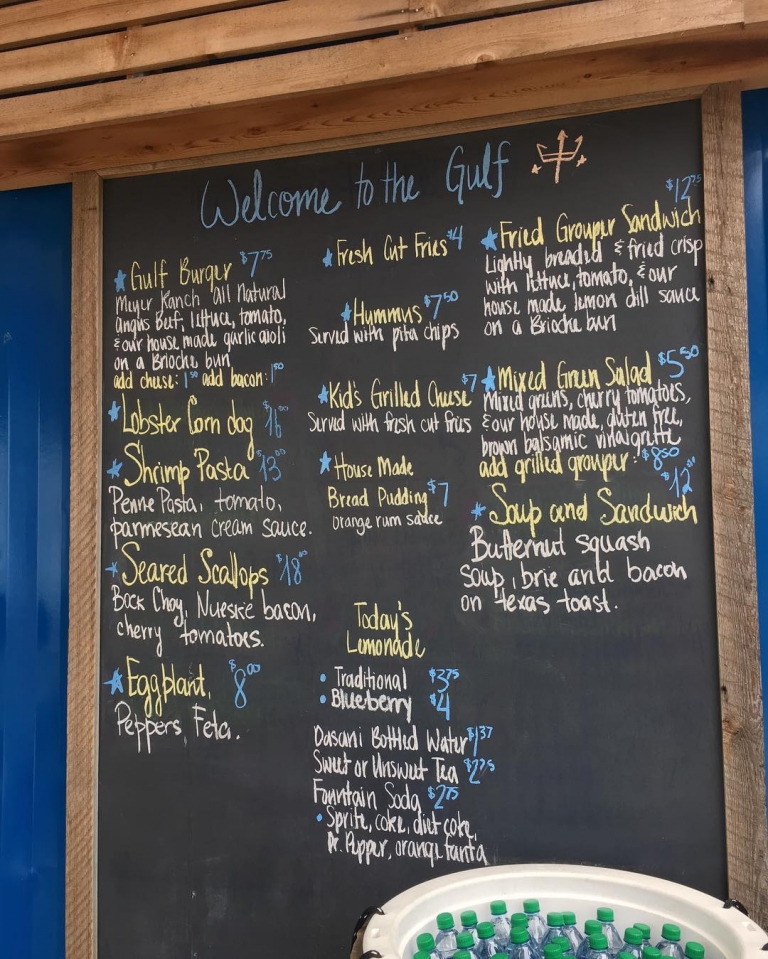 Welcome to the Gulf
Gulf Burger $7.75
Meyer Ranch All Natural
angus beef, lettuce, tomato,
& our house made garlic aioli
on a Brioche bun
add cheese: 1.50 add bacon: 1.50
Lobster Corn dog $16.00
Shrimp Pasta $13.00
Penne Pasta, tomato,
parmesean cream sauce.
Seared Scallops $18.00
Bock Choy, Nueske bacon,
cherry tomatoes.
Eggplant, $8.00
Peppers, Feta.
Fresh Cut Fries $4
Hummus $7.50
Served with pita chips
Kid's Grilled Cheese $7
Served with fresh cut fries
House Made
Bread Pudding $7
orange rum sauce
Today's
Lemonade
• Traditional $3.75
• Blueberry $4
Dasani Bottled Water $1.37
Sweet or Unsweet Tea $2.75
Fountain Soda $2.75
• Sprite, coke, diet coke,
Dr. Pepper, orange fanta
$12.75
Fried Grouper Sandwich
Lightly breaded & fried crisp
with lettuce, tomato, & our
house made lemon dill sauce
on a Brioche bun
Mixed Green Salad $5.50
Mixed greens, cherry tomatoes,
& our house made, gluten free,
brown balsamic vinaigrette
add grilled grouper: $8.50
$12.00
Soup and Sandwich
Butternut squash
soup, brie and bacon
on texas toast.